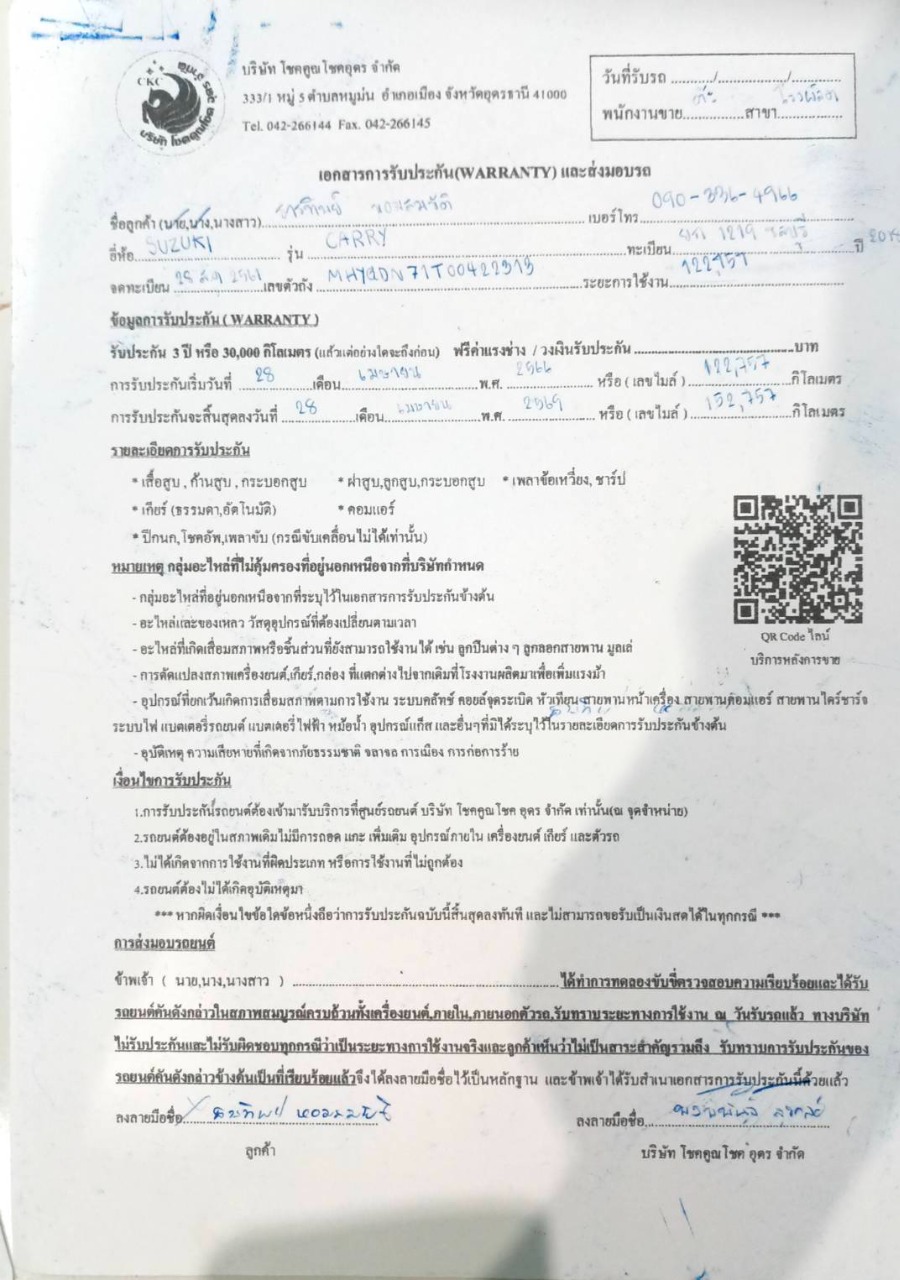 CKC
บริษัท โชคคูณโชคอุดร จำกัด
333/1 หมู่ 5 ตำบลหมูม่น อำเภอเมือง จังหวัดอุดรธานี 41000
Tel. 042-266144 Fax. 042-266145
วันที่รับรถ ............/................/............
พนักงานขาย...............สาขา..................
เอกสารการรับประกัน(WARRANTY) และส่งมอบรถ
ชื่อลูกค้า (นาย,นาง,นางสาว) เบอร์โทร 090-336-4966
ยี่ห้อ SUZUKI รุ่น CARRY ทะเบียน 1219 ชลบุรี ปี
จดทะเบียน 28 ส.ค 2561 เลขตัวถัง ระยะการใช้งาน
ข้อมูลการรับประกัน ( WARRANTY )
รับประกัน 3 ปี หรือ 30,000 กิโลเมตร (แล้วแต่อย่างใดจะถึงก่อน) ฟรีค่าแรงช่าง / วงเงินรับประกัน ........................................บาท
การรับประกันเริ่มวันที่ 28 เดือน เมษายน พ.ศ. 2566 หรือ ( เลขไมล์ ) 122,757 กิโลเมตร
การรับประกันจะสิ้นสุดลงวันที่ 28 เดือน เมษายน พ.ศ. 2569 หรือ ( เลขไมล์ ) 152,757 กิโลเมตร
รายละเอียดการรับประกัน
* เสื้อสูบ , ก้านสูบ , กระบอกสูบ * ฝาสูบ,ลูกสูบ,กระบอกสูบ * เพลาข้อเหวี่ยง, ชาร์ป
* เกียร์ (ธรรมดา,อัตโนมัติ) * คอมแอร์
* ปีกนก,โชคอัพ,เพลาขับ (กรณีขับเคลื่อนไม่ได้เท่านั้น)
หมายเหตุ กลุ่มอะไหล่ที่ไม่คุ้มครองที่อยู่นอกเหนือจากที่บริษัทกำหนด
- กลุ่มอะไหล่ที่อยู่นอกเหนือจากที่ระบุไว้ในเอกสารการรับประกันข้างต้น
- อะไหล่และของเหลว วัสดุอุปกรณ์ที่ต้องเปลี่ยนตามเวลา
- อะไหล่ที่เกิดเสื่อมสภาพหรือชิ้นส่วนที่ยังสามารถใช้งานได้ เช่น ลูกปืนต่าง ๆ ลูกลอกสายพาน มูลเล่
- การดัดแปลงสภาพเครื่องยนต์,เกียร์,กล่อง ที่แตกต่างไปจากเดิมที่โรงงานผลิตมาเพื่อเพิ่มแรงม้า
- อุปกรณ์ที่ยกเว้นเกิดการเสื่อมสภาพตามการใช้งาน ระบบคลัทช์ คอยล์จุดระเบิด หัวเทียน สายพานหน้าเครื่อง สายพานคอมแอร์ สายพานไดร์ชาร์จ
ระบบไฟ แบตเตอรี่รถยนต์ แบตเตอรี่ไฟฟ้า หม้อน้ำ อุปกรณ์แก๊ส และอื่นๆที่มิได้ระบุไว้ในรายละเอียดการรับประกันข้างต้น
- อุบัติเหตุ ความเสียหายที่เกิดจากภัยธรรมชาติ จลาจล การเมือง การก่อการร้าย
QR Code ไลน์
บริการหลังการขาย
เงื่อนไขการรับประกัน
1.การรับประกันรถยนต์ต้องเข้ามารับบริการที่ศูนย์รถยนต์ บริษัท โชคคูณโชค อุดร จำกัด เท่านั้น(ณ จุดจำหน่าย)
2.รถยนต์ต้องอยู่ในสภาพเดิมไม่มีการถอด แกะ เพิ่มเติม อุปกรณ์ภายใน เครื่องยนต์ เกียร์ และตัวรถ
3.ไม่ได้เกิดจากการใช้งานที่ผิดประเภท หรือการใช้งานที่ไม่ถูกต้อง
4.รถยนต์ต้องไม่ได้เกิดอุบัติเหตุมา
*** หากผิดเงื่อนไขข้อใดข้อหนึ่งถือว่าการรับประกันฉบับนี้สิ้นสุดลงทันที และไม่สามารถขอรับเป็นเงินสดได้ในทุกกรณี ***
การส่งมอบรถยนต์
ข้าพเจ้า ( นาย,นาง,นางสาว ) ................................................................ได้ทำการทดลองขับขี่ตรวจสอบความเรียบร้อยและได้รับ
รถยนต์คันดังกล่าวในสภาพสมบูรณ์ครบถ้วนทั้งเครื่องยนต์,ภายใน,ภายนอกตัวรถ,รับทราบระยะทางการใช้งาน ณ วันรับรถแล้ว ทางบริษัท
ไม่รับประกันและไม่รับผิดชอบทุกกรณีว่าเป็นระยะทางการใช้งานจริงและลูกค้าเห็นว่าไม่เป็นสาระสำคัญรวมถึง รับทราบการรับประกันของ
รถยนต์คันดังกล่าวข้างต้นเป็นที่เรียบร้อยแล้วจึงได้ลงลายมือชื่อไว้เป็นหลักฐาน และข้าพเจ้าได้รับสำเนาเอกสารการรับประกันนี้ด้วยแล้ว
ลงลายมือชื่อ ลงลายมือชื่อ
ลูกค้า บริษัท โชคคูณโชค อุดร จำกัด